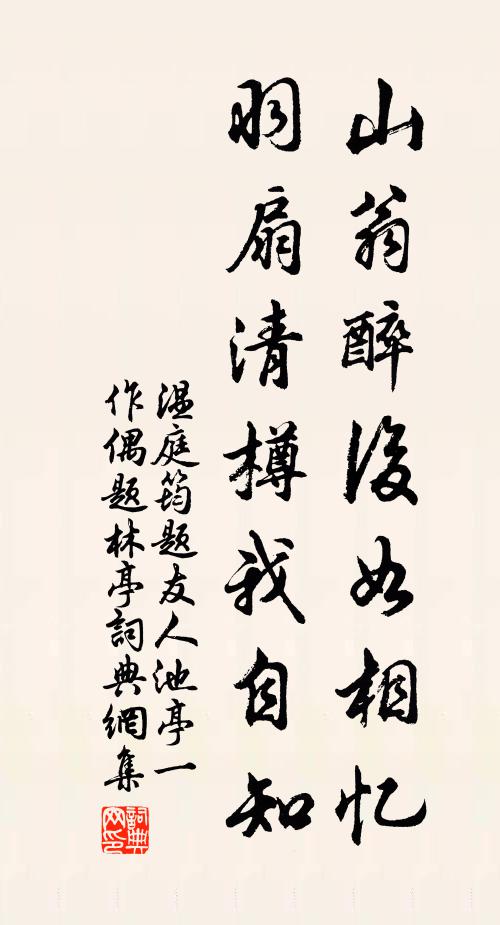 山翁醉後如相忆
羽扇清樽我自知
温庭筠題友人池亭一
作偶題林亭詞典網集
詞典
网印